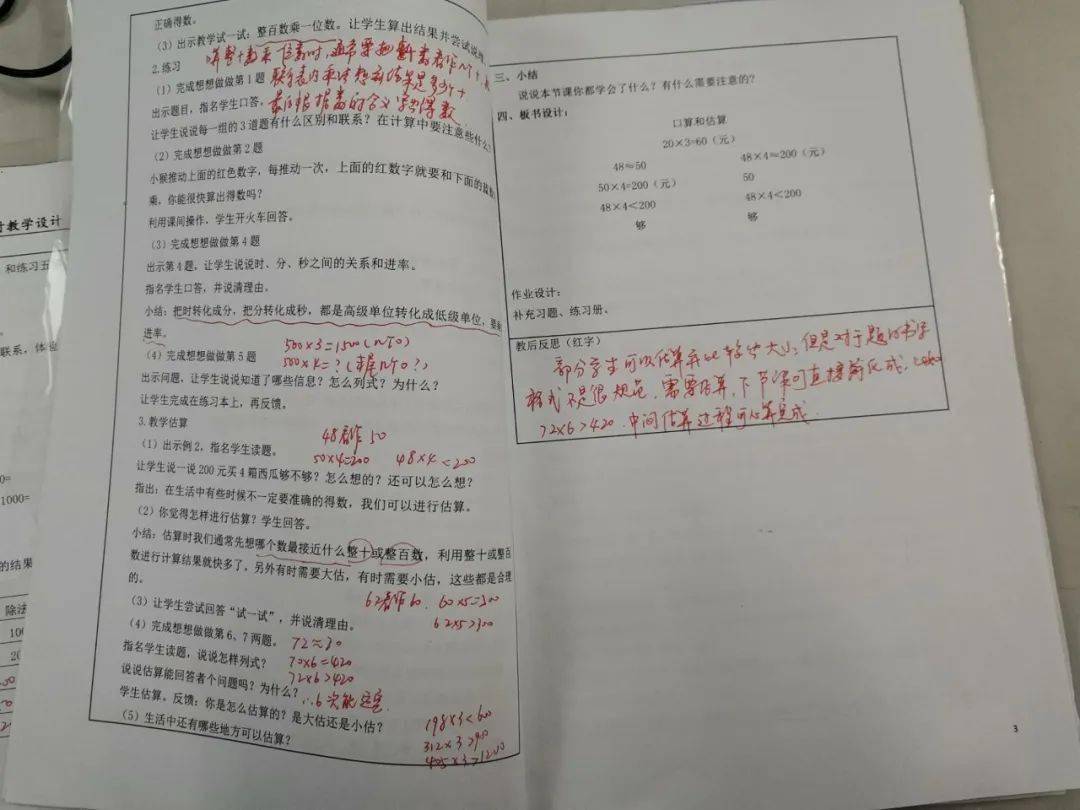 正确得数。
(3)出示教学试一试:整百数乘一位数。让学生算出结果并尝试说理
2.练习
(1)完成想想做做第1题
出示题目,指名学生口答,
让学生说说每一组的3道题有什么区别和联系?在计算中要注意些什么?
(2)完成想想做做第2题
小猴推动上面的红色数字,每推动一次,上面的红数字就要和下面的蓝
乘,你能很快算出得数吗?
利用课间操作,学生开火车回答。
(3)完成想想做做第4题
出示第4题,让学生说说时、分、秒之间的关系和进率。
指名学生口答,并说清理由。
小结:把时转化成分,把分转化成秒,都是高级单位转化成低级单位,要乘
进率。
500×3=1500(
(4)完成想想做做第5题
500×4=?(末尾几个0?)
出示问题,让学生说说知道了哪些信息?怎么列式?为什么?
让学生完成在练习本上,再反馈。
3.教学估算
48看作50
(1)出示例2,指名学生读题。
50×4=200 48×4<200
让学生说一说200元买4箱西瓜够不够?怎么想的?还可以怎么想?
指出:在生活中有些时候不一定要准确的得数,我们可以进行估算。
(2)你觉得怎样进行估算?学生回答。
小结:估算时我们通常先想哪个数最接近什么整十或整百数,利用整十或整百
数进行计算结果就快多了,另外有时需要大估,有时需要小估,这些都是合理
的。
62看作60. 60×5=300
(3)让学生尝试回答“试一试”,并说清理由。
62×5>300
(4)完成想想做做第6、7两题。
指名学生读题,说说怎样列式?
70×6=420
72×6>420
说说估算能回答者个问题吗?为什么?
∴6次能运完
学生估算,反馈:你是怎么估算的?是大估还是小估?
198×3<600
(5)生活中还有哪些地方可以估算?
312×3>90
405×3>1200
三、小结
说说本节课你都学会了什么?有什么需要注意的?
四、板书设计:
口算和估算
20×3=60(元)
48≈50 48×4≈200(元)
50×4=200(元) 50
48×4<200 48×4<200
够 够
作业设计:
补充习题、练习册。
教后反思(红字)
部分学生可以估算并比较出大小,但是对于题的书写
格式不是很规范,需要估算,下节课可直接简化成
72×6>420.中间估算过程可口算完成.
3
时教学设计
和练习五
联系,体
1000=
的结果
除法